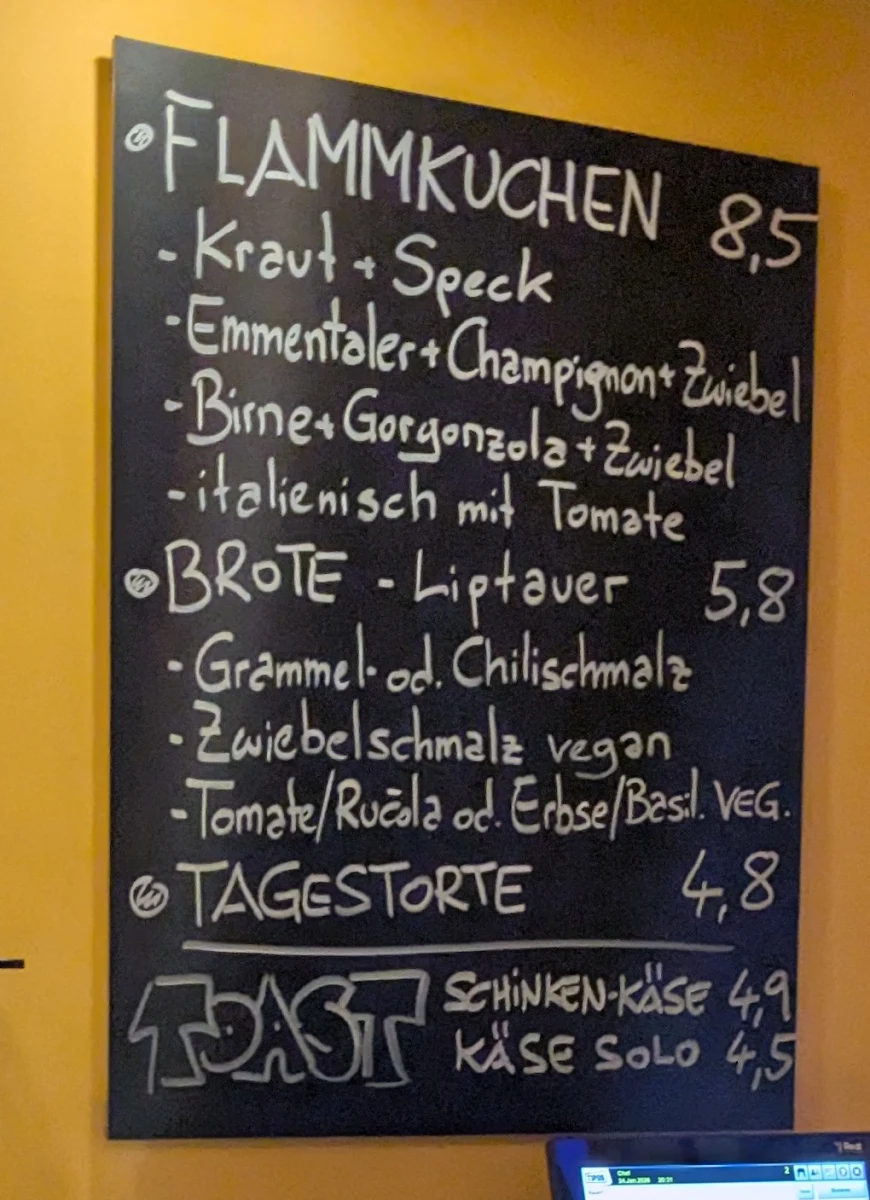 FLAMMKUCHEN 8,5
- Kraut + Speck
- Emmentaler + Champignon + Zwiebel
- Birne + Gorgonzola + Zwiebel
- italienisch mit Tomate
BROTE - Liptauer 5,8
- Grammel- od. Chilischmalz
- Zwiebelschmalz vegan
- Tomate/Ručola od. Erbse/Basil. VEG.
TAGESTORTE 4,8
TOAST SCHINKEN-KÄSE 4,9
KÄSE SOLO 4,5
Chef 2
24.Jan.2026 20:31